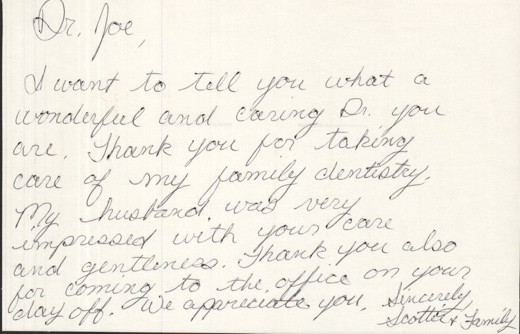 Dr. Joe,
I want to tell you what a
wonderful and caring Dr. you
are. Thank you for taking
care of my family dentistry.
My husband was very
impressed with your care
and gentleness. Thank you also
for coming to the office on your
day off. We appreciate you. Sincerely,
Scottie & Family